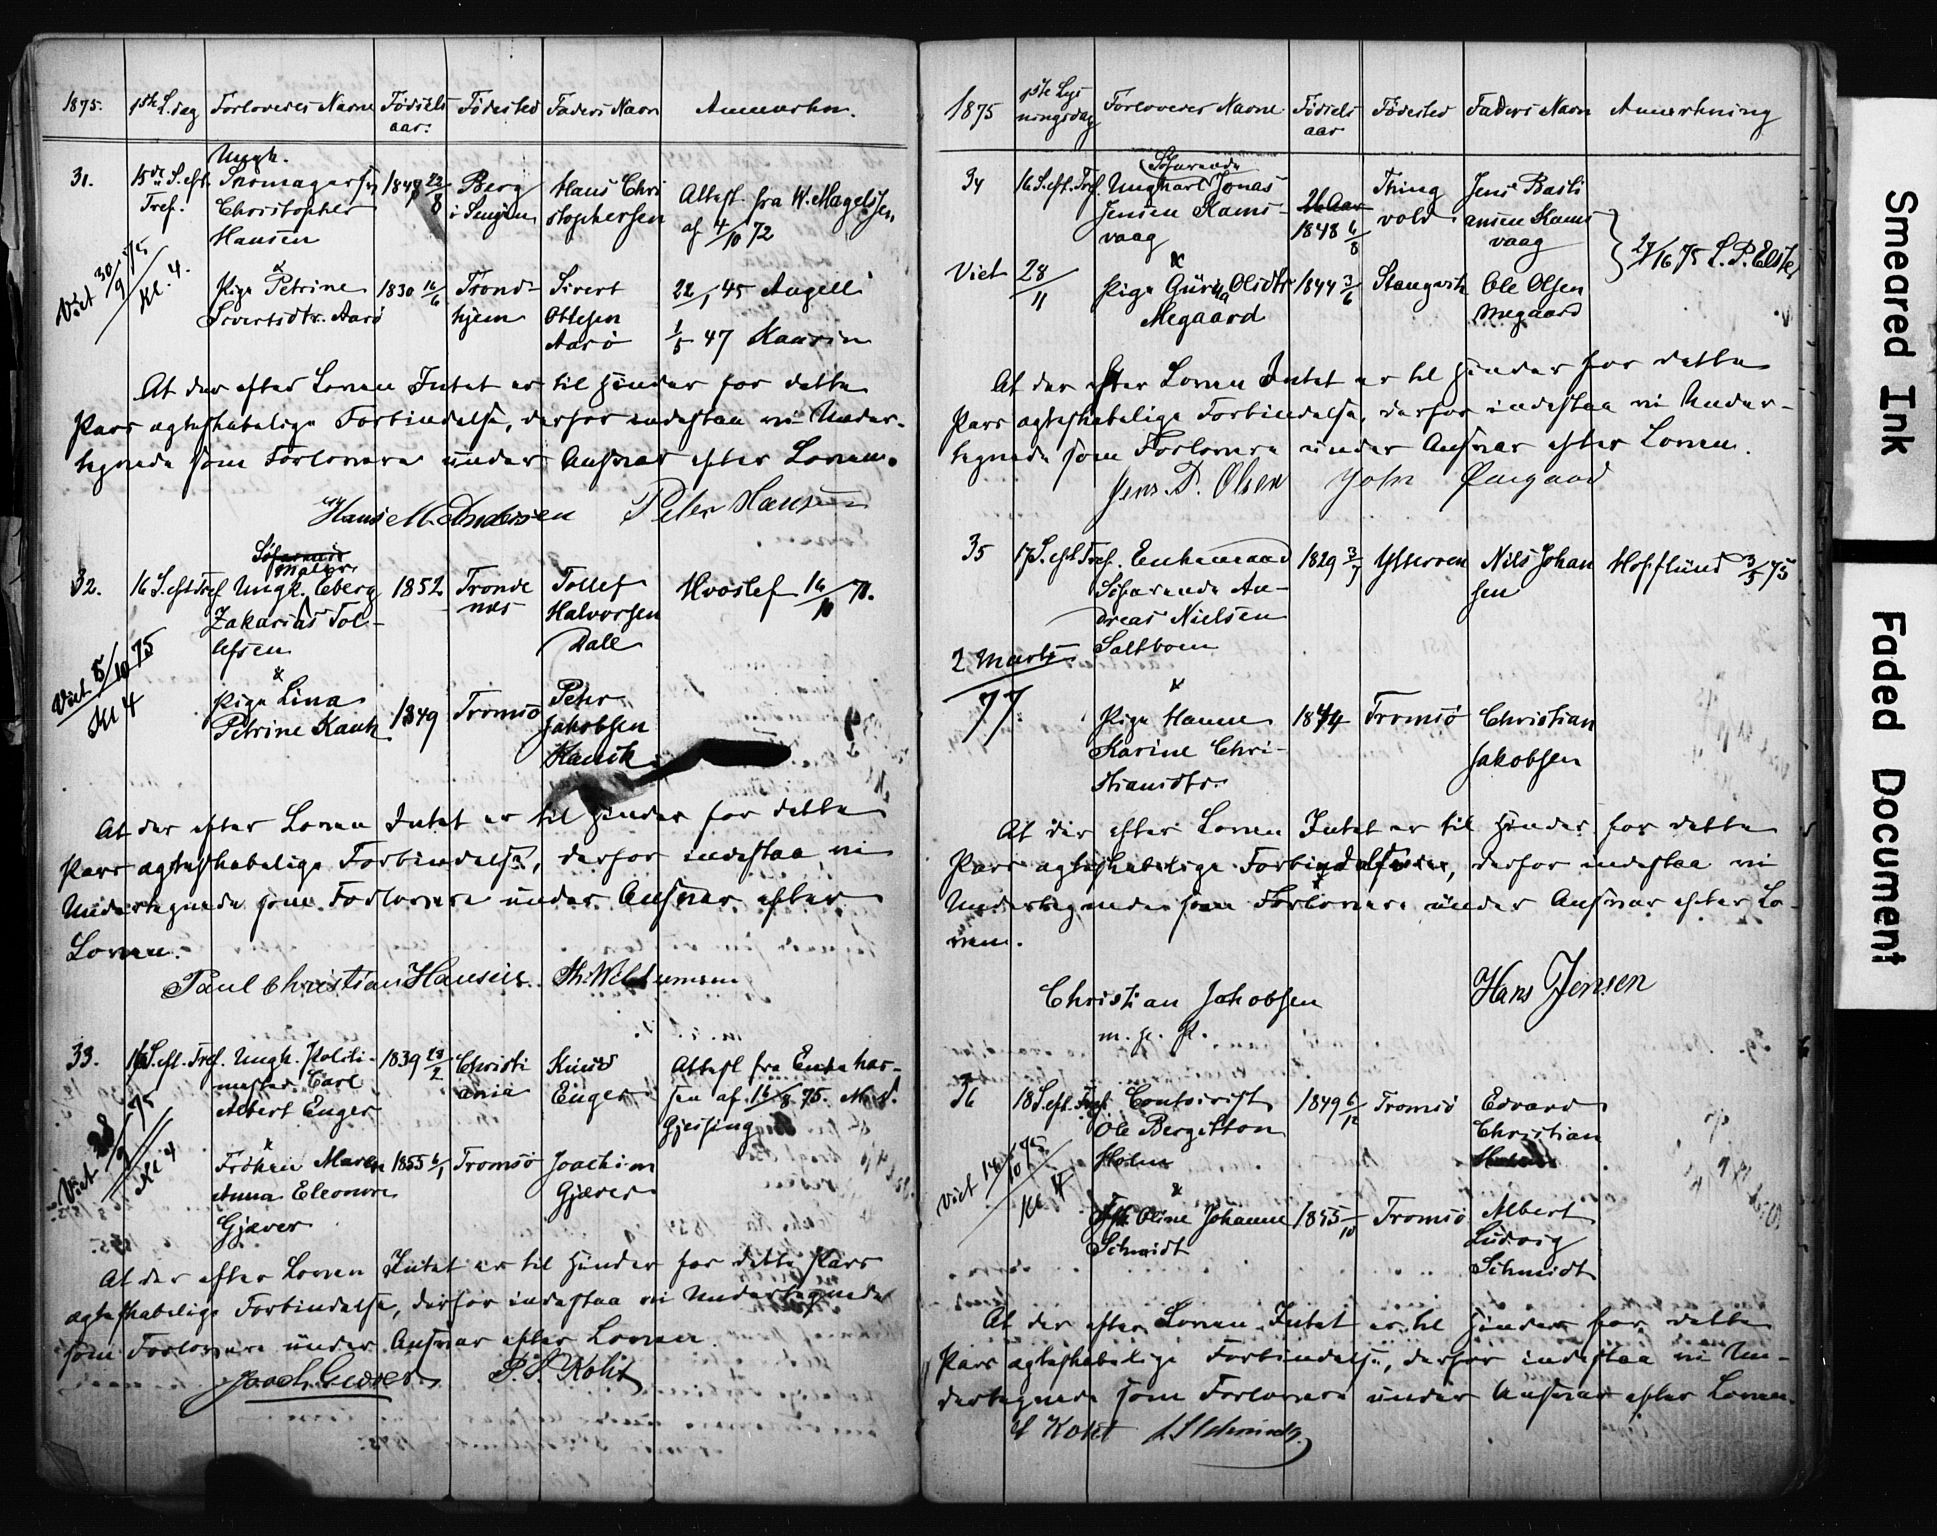 1875. 1ste L.dag Forlovedes Navne Fødsels aar: Fødested Faders Navn Anmærkn.
31. 15de S. eft. Tref. Ungk. Skomagersv. Christopher Hansen 1848 23/8 Berg i Senjen Hans Chri stophersen Attest fra W. Magelssen af 4/10 72
Viet 30/9 75 Kl. 4.
x
Pige Petrine Sivertsdtr. Aarø 1830 16/6 Trond- hjem Sivert Ottesen Aarø 22/1 45 Angell 1/5 47 Kaurin
At der efter Loven Intet er til Hinder for dette
Pars ægteskabelige Forbindelse, derfor indestaa vi Under-
tegnede som Forlovere under Ansvar efter Loven.
Hans M. Andersen Peter Hansen
32. 16 S. eft Tref Søfarende Maler Ungk. Eberg Zakarias Tol- lefsen 1852 Tronde næs Tollef Halvorsen Dall Hvoslef 16/10 71.
Viet 5/10 75 Kl 4
x
Pige Lina Petrine Kauk 1849 Tromsø Peter Jakobsen Kauk
At der efter Loven Intet er til Hinder for dette
Pars ægteskabelige Forbindelse, derfor indestaa vi
Undertegnede som Forlovere under Ansvar efter
Loven.
Paul Christian Hansen. Th. Wilhumsen
33. 16 S. eft. Tref. Ungk. Politi- mester Carl Albert Enger 1839 28/2 Christi ania Knud Enger Attest fra Enebak- ken af 16/8 75. N. S. Gjessing
Viet 28/9 75 Kl 4
x
Frøken Maren Anna Eleonore Gjæver 1855 6/1 Tromsø Joachim Gjæver
At der efter Loven Intet er til Hinder for dette Pars
ægteskabelige Forbindelse, derfor indestaa vi Undertegnede
som Forlovere under Ansvar efter Loven
Joach. Giæver P. S. Koht
1875 1ste Lys ningsdag Forlovedes Navne Fødsels aar Fødested Faders Navn Anmærkning
34 16 S. eft. Tref. Søfarende Ungkarl Jonas Jensen Kams- vaag 26 Aar 1848 6/8 Thing vold Jens Basti ansen Kams vaag
27/16 75 L. P. Elster
Viet 28/11
x
Pige Guruna Olsdtr Megaard 1844 3/6 Stangvik Ole Olsen Megaard
At der efter Loven Intet er til Hinder for dette
Pars ægteskabelige Forbindelse, derfor indestaa vi Under-
tegnede som Forlovere under Ansvar efter Loven.
Jens. P. Olsen John Øiegaard
35 17 S. eft. Tref. Enkemand Søfarende An- dreas Nielsen Saltbom 1829 3/1 Ytterøen Nils Johan sen Hofflund 3/5 75
2 Marts 77
x
Pige Hanne Karine Chri- stiansdtr. 1844 Tromsø Christian Jakobsen
At der efter Loven Intet er til Hinder for dette
Pars ægteskabelige Forbindelse, derfor indestaa vi
Undertegnede som Forlovere under Ansvar efter Lo-
ven.
Christian Jakobsen Hans Jensen
m. p. P.
36 18 S. eft. Tref. Contorist Ole Bergitton Holm 1849 6/12 Tromsø Edvard Christian Holm
Viet 14/10 75 Kl 4
x
Frk. Oline Johanne Schmidt 1855 /10 Tromsø Albert Ludvig Schmidt
At der efter Loven Intet er til Hinder for dette
Pars ægteskabelige Forbindelse, derfor indestaa vi Un-
dertegnede som Forlovere under Ansvar efter Loven.
Koht Schmidt.
Smeared Ink
Faded Document